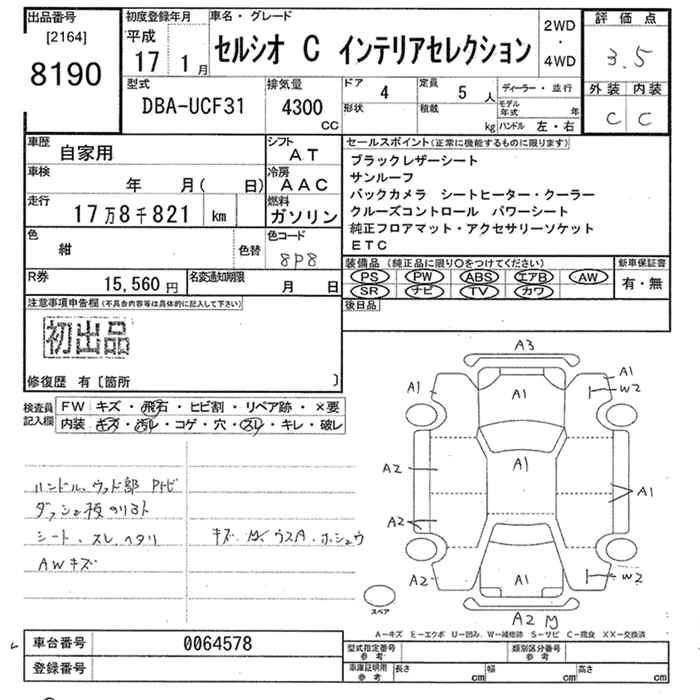 出品番号
[2164]
8190
初度登録年月
平成
17年
1月
車名・グレード
セルシオ C インテリアセレクション
2WD
・
4WD
評価点
3.5
外装 内装
C C
型式
DBA-UCF31
排気量
4300
CC
ドア
4
形状
定員
5人
積載
kg
ディーラー・並行
モデル年式 年
ハンドル 左・右
車歴
自家用
シフト
AT
車検
年 月( 日)
冷房
AAC
走行
17万8千821 km
燃料
ガソリン
色
紺
色替
色コード
8P8
R券
15,560円
名変通知期限
月 日
セールスポイント(正常に機能するものに限ります)
ブラックレザーシート
サンルーフ
バックカメラ シートヒーター・クーラー
クルーズコントロール パワーシート
純正フロアマット・アクセサリーソケット
ETC
装備品 (純正品に限り○をつけてください)
PS PW ABS エアB AW
SR ナビ TV カワ
新車保証書
有・無
後日品
注意事項申告欄(不具合内容等は具体的に記入して下さい)
初出品
修復歴 有〔箇所 〕
検査員
記入欄
FW キズ・飛石・ヒビ割・リペア跡・×要
内装 キズ・汚レ・コゲ・穴・スレ・キレ・破レ
ハンドル、ウッド部
シート、スレ、ヘタリ
AWキズ
A3
A1
A1
A1
W2
A1
A2
A1
A2
A2
A1
W2
A2
スペア
A-キズ E-エクボ U-凹み W-補修跡 S-サビ C-腐食 XX-交換済
車台番号
0064578
登録番号
型式指定番号
参考
類別区分番号
参考
車庫証明用
参考
長さ cm
幅 cm
高さ cm